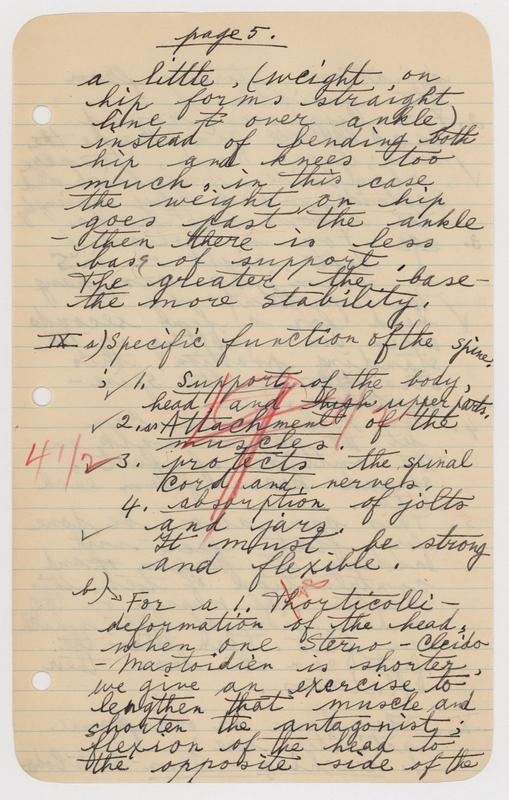 page 5.
a little, (weight on
hip forms straight
line over ankle)
instead of bending both
hip and knees too
much, in this case
the weight on hip
goes past the ankle
- then there is less
base of support.
The greater the base-
the more stability.
IX a) Specific function of the spine.
; ✓ 1. Support of the body,
head and thigh upper parts.
✓ 2. Attachment of the
muscles.
4 1/2 ✓ 3. protects the spinal
cord and nerves.
4. absorption of jolts
✓ and jars.
It must be strong
and flexible.
b) For a 1. Thorticolli-
deformation of the head,
when one Sterno-Cleido
-Mastoidien is shorter,
we give an exercise to
lengthen that muscle and
shorten the antagonist;
flexion of the head to
the opposite side of the